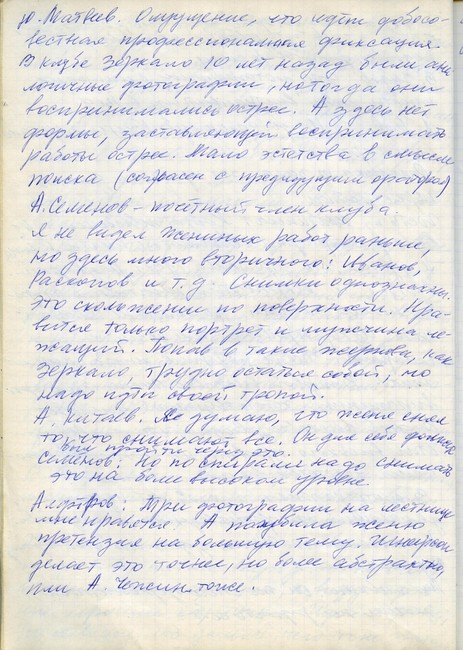 Ю. Матвеев. Ощущение, что идёт добросо-
вестная профессиональная фиксация.
В клубе Зеркало 10 лет назад были ана-
логичные фотографии, но тогда они
воспринимались острее. А здесь нет
формы, заставляющей воспринимать
работы острее. Мало эстетства в смысле
поиска (согласен с предидущим оратором)
А. Семенов – почётный член клуба.
Я не видел жениных работ раньше,
но здесь много вторичного: Иванов,
Раскопов и т.д. Снимки однозначны.
Это скольжение по поверхности. Нра-
вится только портрет и мужчина ле-
жащий. Попав в такие жернова, как
Зеркало, трудно остаться собой, но
надо идти своей тропой.
А. Китаев. Я думаю, что Женя снял
то, что снимают все. Он для себя должен
был пройти через это.
Семёнов: Но по спирали надо снимать
это на более высоком уровне.
Три фотографии на лестнице
мне нравятся. А погубила Женю
претензия на большую тему.
делает это точнее, но более абстрактно,
или А. тоже.